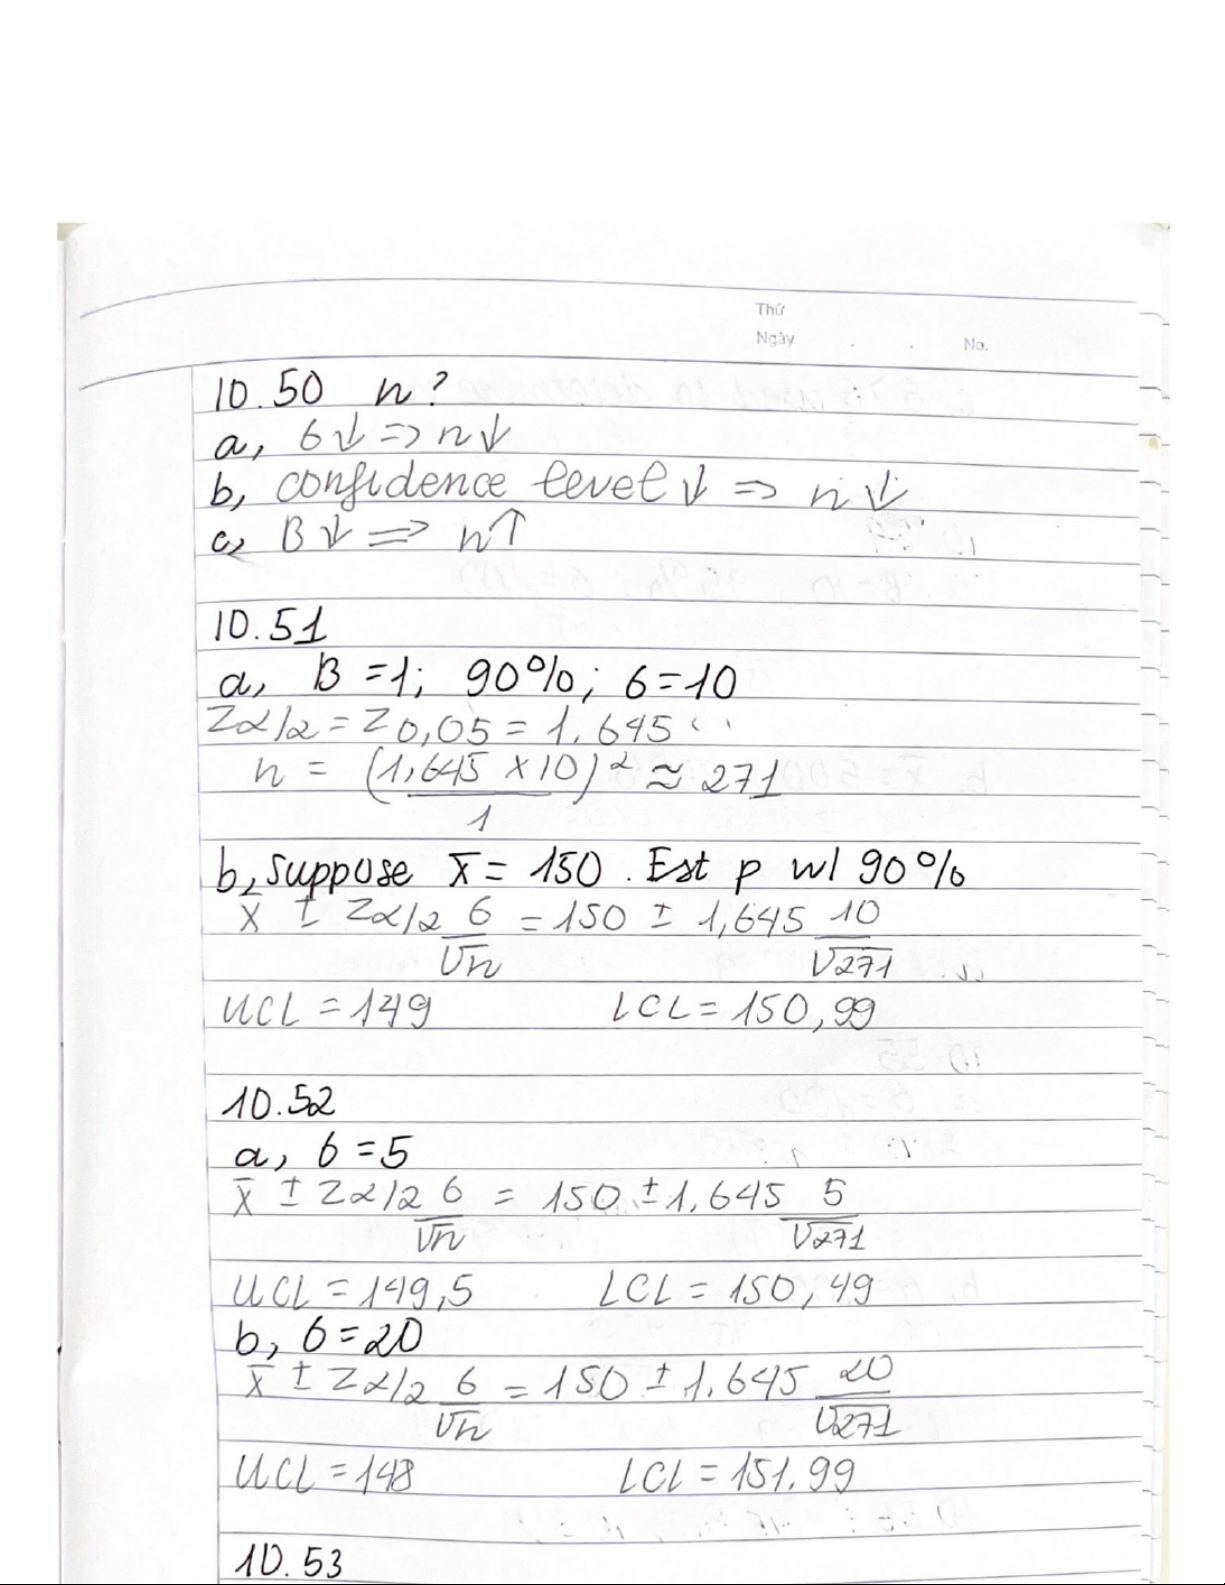 Thứ
Ngày . . No.
10.50 n?
a, 6↓ => n↓
b, confidence level ↓ => n↓
c, B↓ => n↑
10.51
a, B = 1; 90%; 6=10
Zα/2 = Z0,05 = 1.645
n = (1,645 × 10 / 1)² ≈ 271
b, suppose x̄ = 150. Est p w/ 90%
x̄ ± Zα/2 6/√n = 150 ± 1,645 10/√271
UCL = 149 LCL = 150,99
10.52
a, 6 = 5
x̄ ± Zα/2 6/√n = 150 ± 1,645 5/√271
UCL = 149,5 LCL = 150,49
b, 6 = 20
x̄ ± Zα/2 6/√n = 150 ± 1.645 20/√271
UCL = 148 LCL = 151.99
10.53